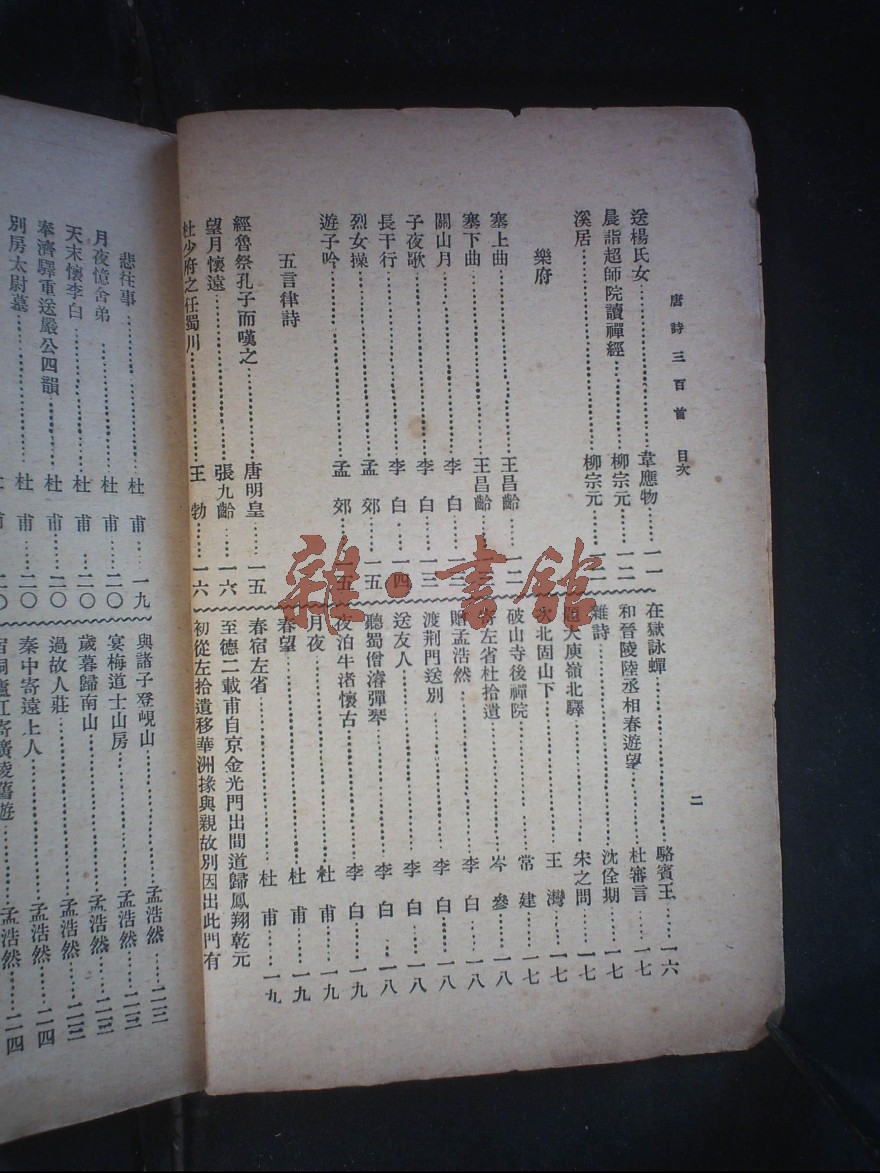 唐詩三百首 目次
二
送楊氏女……韋應物……一一
晨詣超師院讀禪經……柳宗元……一二
溪居……柳宗元……一二
樂府
塞上曲……王昌齡……一二
塞下曲……王昌齡……一三
關山月……李白……一三
子夜歌……李白……一三
長干行……李白……一四
烈女操……孟郊……一五
遊子吟……孟郊……一五
五言律詩
經魯祭孔子而嘆之……唐明皇……一五
望月懷遠……張九齡……一六
杜少府之任蜀川……王勃……一六
在獄詠蟬……駱賓王……一六
和晉陵陸丞相春遊望……杜審言……一七
雜詩……沈佺期……一七
題大庾嶺北驛……宋之問……一七
北固山下……王灣……一七
破山寺後禪院……常建……一七
寄左省杜拾遺……岑參……一八
贈孟浩然……李白……一八
渡荆門送別……李白……一八
送友人……李白……一八
聽蜀僧濬彈琴……李白……一八
夜泊牛渚懷古……李白……一九
月夜……杜甫……一九
春望……杜甫……一九
春宿左省……杜甫……一九
至德二載甫自京金光門出間道歸鳳翔乾元
初從左拾遺移華洲掾與親故別因出此門有
悲往事……杜甫……一九
月夜憶舍弟……杜甫……二〇
天末懷李白……杜甫……二〇
奉濟驛重送嚴公四韻……杜甫……二〇
別房太尉墓……杜甫……二〇
甫……二〇
與諸子登峴山……孟浩然……二三
宴梅道士山房……孟浩然……二三
歲暮歸南山……孟浩然……二三
過故人莊……孟浩然……二三
秦中寄遠上人……孟浩然……二四
宿桐廬江寄廣陵舊遊……孟浩然……二四
雜·書館